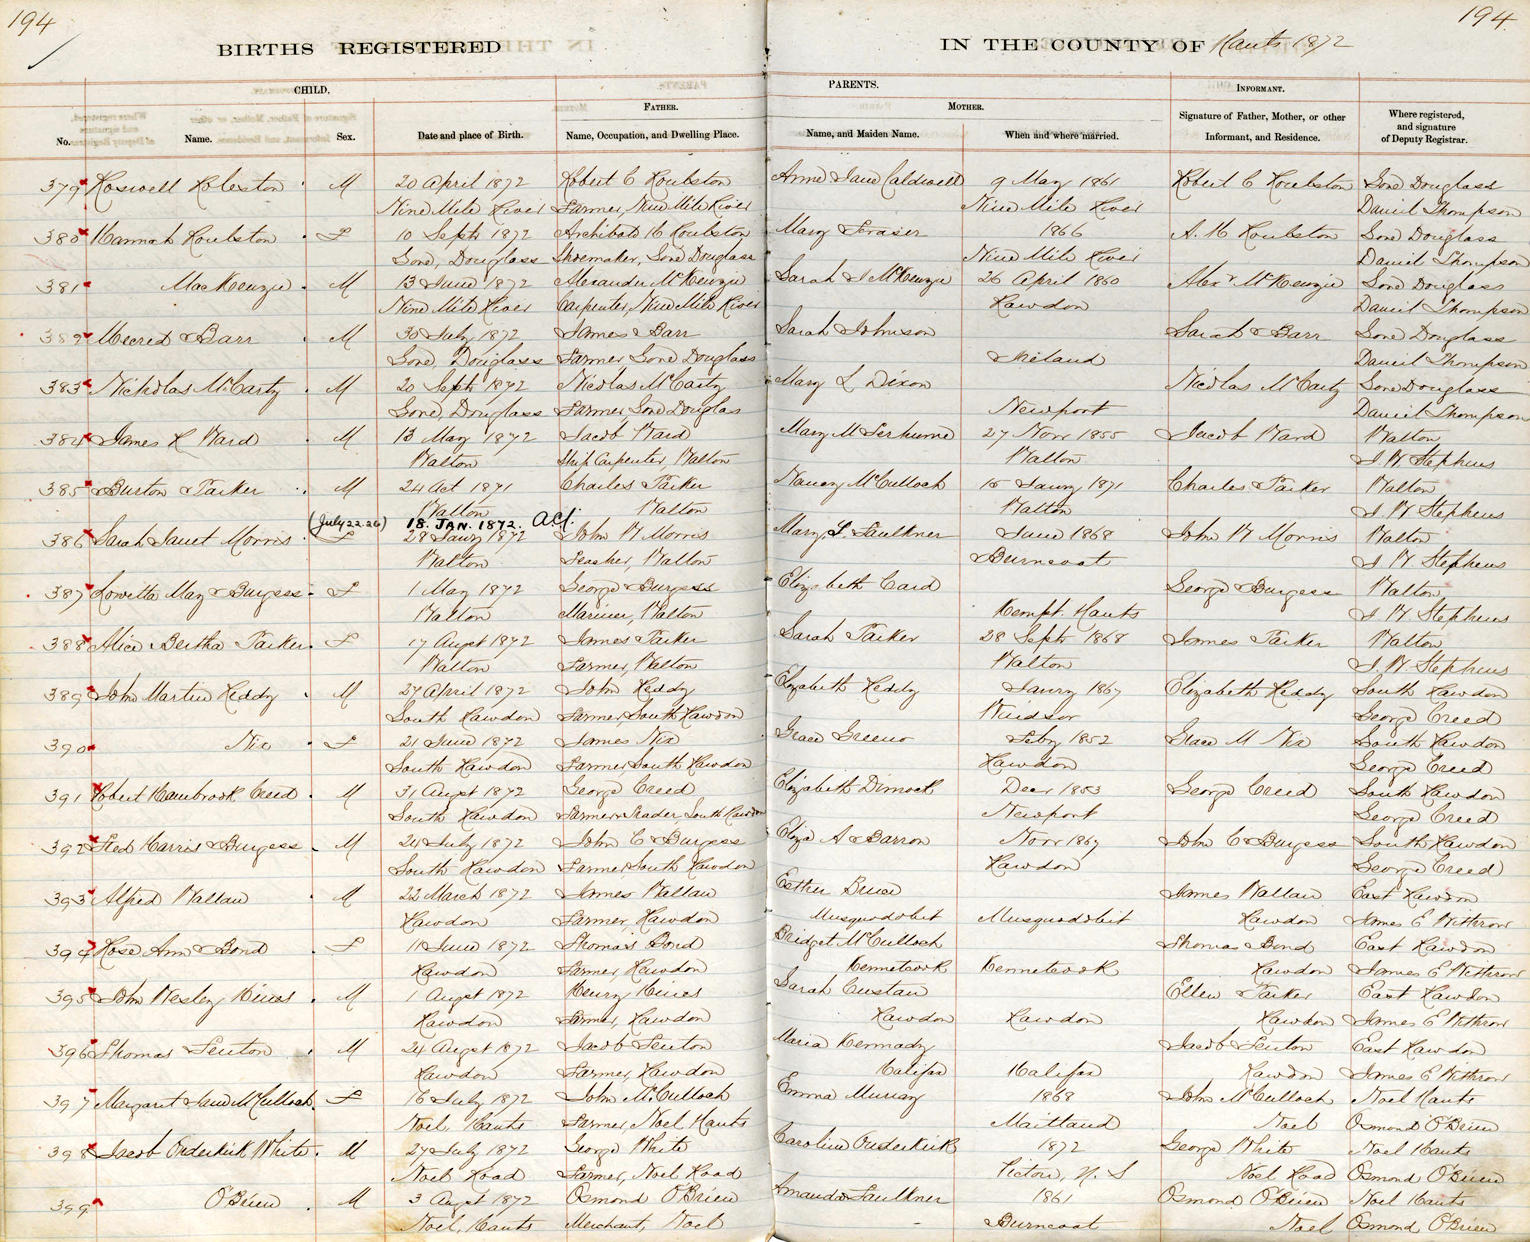 194
194
BIRTHS REGISTERED
IN THE COUNTY OF Hants 1872
CHILD.
PARENTS.
INFORMANT.
No.
Name.
Sex.
Date and place of Birth.
FATHER.
Name, Occupation, and Dwelling Place.
MOTHER.
Name, and Maiden Name.
When and where married.
Signature of Father, Mother, or other
Informant, and Residence.
Where registered,
and signature
of Deputy Registrar.
379 Roswell Roleston M 20 April 1872 Robert C Roulston Anne Jane Caldwell 9 May 1861 Robert C Roulston Gore Douglass
Nine Mile River Farmer, Nine Mile River Nine Mile River Daniel Thompson
380 Hannah Roulston F 10 Sept 1872 Archibald H Roulston Mary Fraser 1866 A. H Roulston Gore Douglass
Gore, Douglass Shoemaker, Gore Douglass Nine Mile River Daniel Thompson
381 MacKenzie M 13 June 1872 Alexander McKenzie Sarah J McKenzie 26 April 1860 Alexr McKenzie Gore Douglass
Nine Mile River Carpenter, Nine Mile River Rawdon Daniel Thompson
382 Barr M 30 July 1872 James Barr Sarah Johnson Sarah Barr Gore Douglass
Gore, Douglass Farmer Gore Douglass Ireland Daniel Thompson
383 Nicholas McCarty M 20 Sept 1872 Nicolas McCarty Mary L Dixon Nicolas McCarty Gore Douglass
Gore Douglass Farmer, Gore Douglas Newport Daniel Thompson
384 James R Ward M 13 May 1872 Jacob Ward Mary M 27 Novr 1855 Jacob Ward Walton
Walton Ship Carpenter, Walton Walton J W Stephens
385 Burton Parker M 24 Oct 1871 Charles Parker Nancy McCulloch 15 Jany 1871 Charles Parker Walton
Walton Walton Walton J W Stephens
(July 22.26) 18. JAN. 1872. A.C.F.
386 Sarah Janet Morris F 28 Jany 1872 John W Morris Mary, L. Faulkner June 1868 John W Morris Walton
Walton Teacher, Walton Burncoat J W Stephens
387 Lowetta May Burgess F 1 May 1872 George Burgess Elizabeth Card George Burgess Walton
Walton Mariner, Walton Kempt. Hants J W Stephens
388 Alice Bertha Parker F 17 Augst 1872 James Parker Sarah Parker 28 Sept 1868 James Parker Walton
Walton Farmer, Walton Walton J. W Stephens
389 John Martin Reddy M 27 April 1872 John Reddy Elizabeth Reddy Janry 1867 Elizabeth Reddy South Rawdon
South Rawdon Farmer, South Rawdon Windsor George Creed
390 Nix F 21 June 1872 James Nix Grace Greeno Feby 1852 Grace M Nix South Rawdon
South Rawdon Farmer, South Rawdon Rawdon George Creed
391 Robert Hambrook Creed M 31 Augst 1872 George Creed Elizabeth Dimock Decr 1853 George Creed South Rawdon
South Rawdon Farmer & Trader South Rawdon Newport George Creed
392 Fred Harris Burgess M 24 July 1872 John C Burgess Eliza A Barron Novr 1867 John C Burgess South Rawdon
South Rawdon Farmer South Rawdon Rawdon George Creed
393 Alfred Wallace M 22 March 1872 James Wallace Esther Bruce James Wallace East Rawdon
Rawdon Farmer, Rawdon Musquodobit Musquodobit Rawdon James E Withrow
394 Rose Ann Bond F 11 June 1872 Thomas Bond Bridget McCulloch Thomas Bond East Rawdon
Rawdon Farmer, Rawdon Kennetcook Kennetcook Rawdon James E Withrow
395 John Wesley Hines M 1 Augst 1872 Henry Hines Sarah Custan Ellen Parker East Rawdon
Rawdon Farmer, Rawdon Rawdon Rawdon Rawdon James E Withrow
396 Thomas Fenton M 24 Augst 1872 Jacob Fenton Maria Kennady Jacob Fenton East Rawdon
Rawdon Farmer, Rawdon Halifax Halifax Rawdon James E Withrow
397 Margaret Jane McCulloch F 16 July 1872 John McCulloch Emma Murray 1868 John McCulloch Noel Hants
Noel, Hants Farmer, Noel Hants Maitland Noel Osmond O'Brien
398 Jacob Onderkirk White M 27 July 1872 George White Caroline Onderkirk 1872 George White Noel Hants
Noel Road Farmer, Noel Road Pictou, N. S Noel Road Osmond O'Brien
399 O'Brien M 3 Augst 1872 Osmond O'Brien Amanda Faulkner 1861 Osmond O'Brien Noel Hants
Noel, Hants Merchant, Noel Burncoat Noel Osmond O'Brien